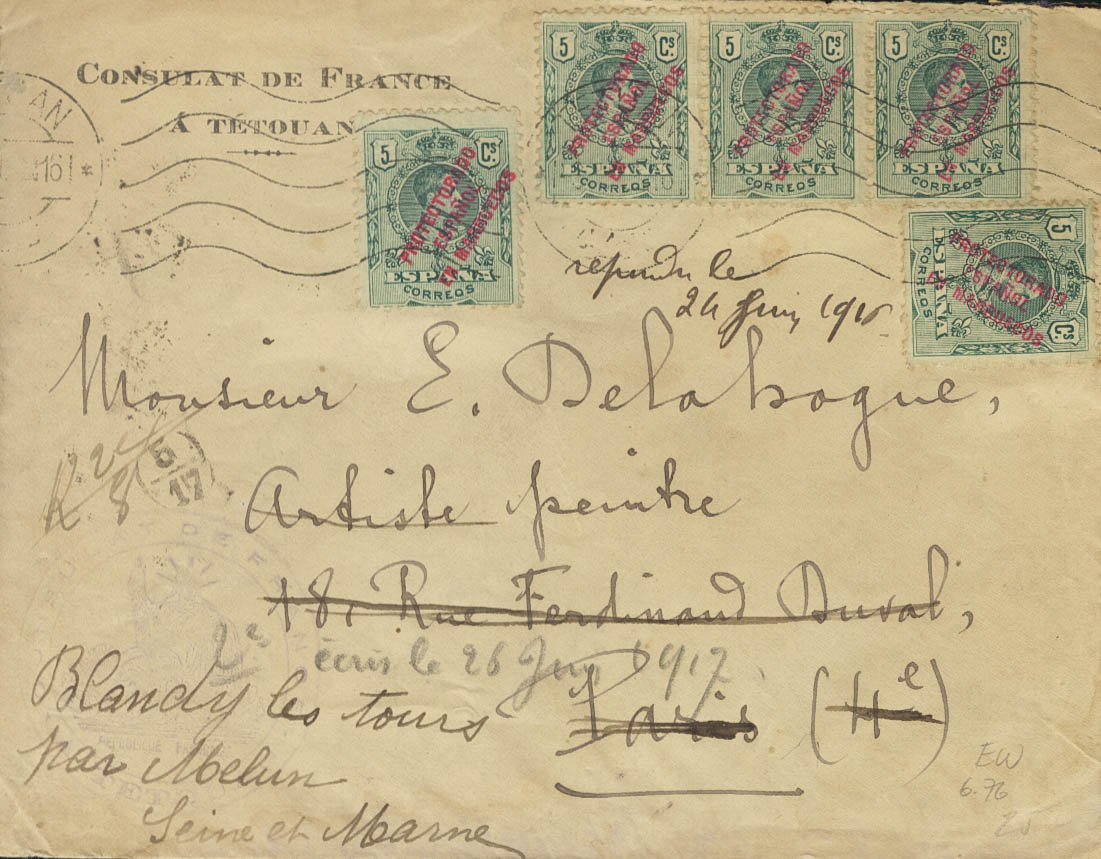 CONSULAT DE FRANCE
À TÉTOUAN
5 Cs
PROTECTORADO
ESPAÑOL
EN MARRUECOS
ESPAÑA
CORREOS
5 Cs
PROTECTORADO
ESPAÑOL
EN MARRUECOS
ESPAÑA
CORREOS
5 Cs
PROTECTORADO
ESPAÑOL
EN MARRUECOS
ESPAÑA
CORREOS
5 Cs
PROTECTORADO
ESPAÑOL
EN MARRUECOS
ESPAÑA
CORREOS
5 Cs
PROTECTORADO
ESPAÑOL
EN MARRUECOS
ESPAÑA
CORREOS
AN
16
répondu le
24 Juin
Monsieur E. Delahogue,
5
17
Artiste peintre
18, Rue Ferdinand Duval,
écris le 26 Juin 1917.
Paris (4e)
Blandy les tours
par Melun
Seine et Marne
EW
6.76